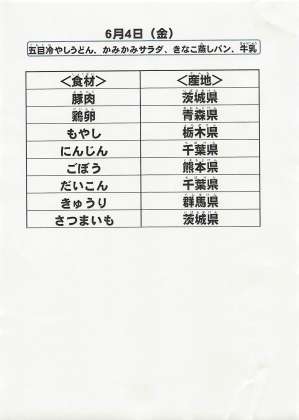 6月4日（金）
五目冷やしうどん、かみかみサラダ、きなこ蒸しパン、牛乳
＜食材＞ ＜産地＞
豚肉 茨城県
鶏卵 青森県
もやし 栃木県
にんじん 千葉県
ごぼう 熊本県
だいこん 千葉県
きゅうり 群馬県
さつまいも 茨城県